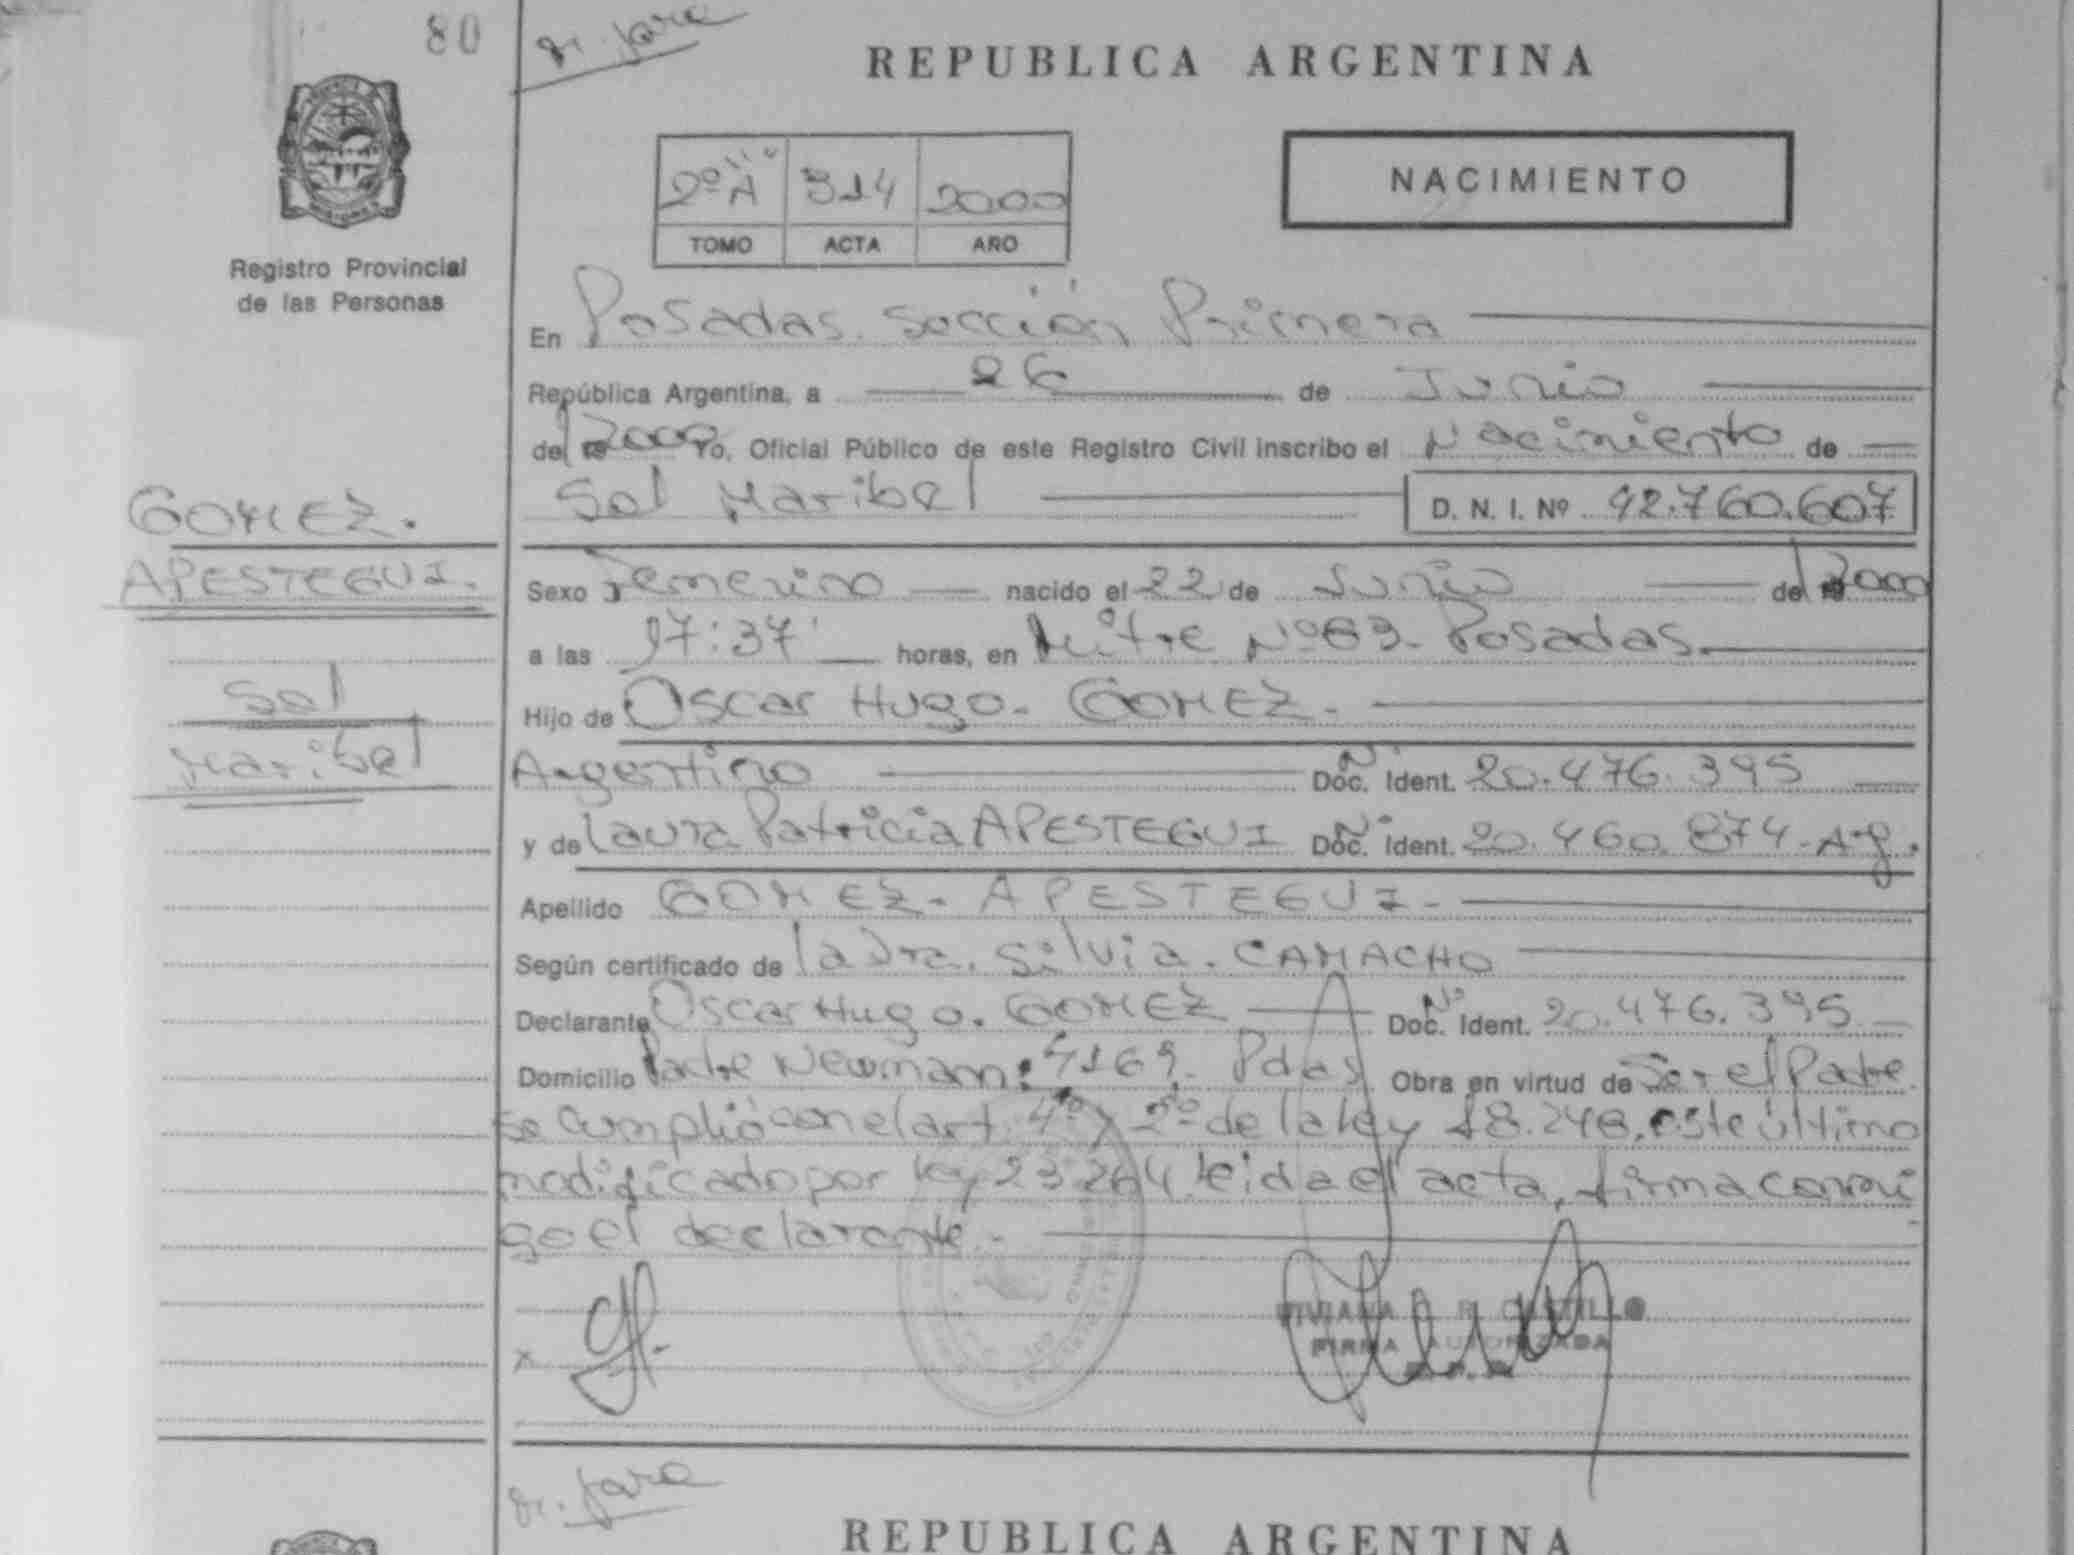 80
REPUBLICA ARGENTINA
2º A 314 2000
TOMO ACTA AÑO
NACIMIENTO
Registro Provincial
de las Personas
En Posadas. Sección Primera
República Argentina, a 26 de Junio
del 2000 Yo, Oficial Público de este Registro Civil inscribo el Nacimiento de
Sol Maribel D. N. I. Nº 42.760.607
GOMEZ.
APESTEGUI.
Sol
Maribel
Sexo Femenino nacido el 22 de Junio del 2000
a las 17:37' horas, en Mitre Nº 69. Posadas.
Hijo de Oscar Hugo. GOMEZ.
Argentino Nº Doc. Ident. 20.476.395
y de Laura Patricia APESTEGUI Nº Doc. Ident. 20.460.874. Arg.
Apellido GOMEZ. APESTEGUI.
Según certificado de la Dra. Silvia. CAMACHO
Declarante Oscar Hugo. GOMEZ Nº Doc. Ident. 20.476.395
Domicilio Padre Newmann: 4169. Pdas Obra en virtud de Ser el Padre.
se cumplió con el art. 4º y 2º de la ley 18.248, este último
modificado por ley 23264. leida el acta, firma conmi
go el declarante.
VIVIANA R. CASTILLO
FIRMA AUTORIZADA
x
REPUBLICA ARGENTINA